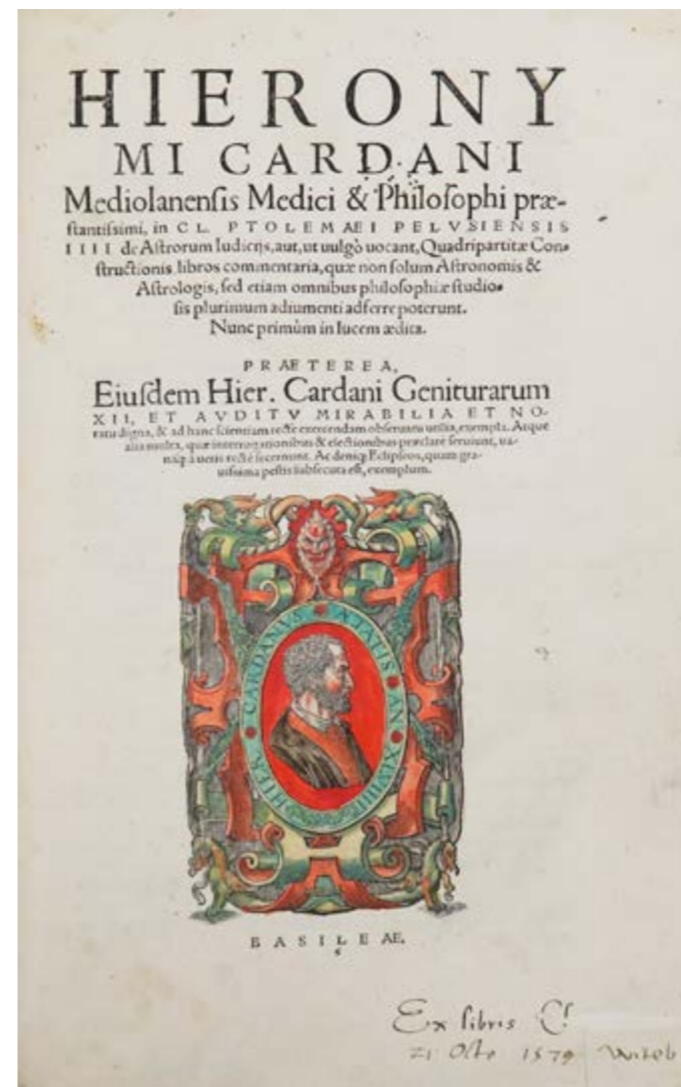 HIERONY
MI CARDANI
Mediolanenſis Medici & Philoſophi præ-
ſtantiſsimi, in CL. PTOLEMAEI PELVSIENSIS
IIII de Aſtrorum Iudicijs, aut, ut uulgò uocant, Quadripartitæ Con-
ſtructionis libros commentaria, quæ non ſolum Aſtronomis &
Aſtrologis, ſed etiam omnibus philoſophiæ ſtudio-
ſis plurimum adiumenti adferre poterunt.
Nunc primùm in lucem ædita.
PRAETEREA,
Eiuſdem Hier. Cardani Geniturarum
XII, ET AVDITV MIRABILIA ET NO-
tatu digna, & ad hanc ſcientiam rectè exercendam obſeruatu utilia, exempla. Atque
alia multa, quæ interrogationibus & electionibus præclarè ſeruiunt, ua-
naq; à ueris rectè ſecernunt. Ac deniq; Eclipſeos, quam gra-
uiſsima peſtis ſubſecuta eſt, exemplum.
HIER CARDANVS ÆTATIS AN XLVIIII
BASILEAE.
Ex libris
21 Octo 1579 Viteb